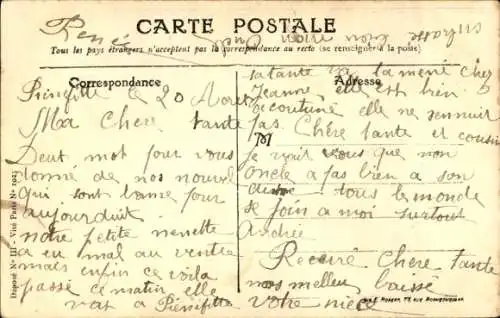 CARTE POSTALE
Tous les pays étrangers n'acceptent pas la correspondance au recto (se renseigner à la poste)
Correspondance
Pierrefitte le 20 Aout
Ma Chere tante
Deut mot pour vous
donné de nos nouvel
qui sont bonne pour
aujourduit
notre petite nenette
a eu mal au ventre
mais enfin ce voila
passé ce matin elle
vat a Pierrefitte
Adresse
sa tante la mené chez
Jeanne, elle est bien
acoutuné elle ne sennuit
pas. Chère tante et cousin
M
je voit vous que mon
oncle a pas bien a son
tous le monde
se join a moi surtout
Andrée
Recevé Chere tante
nos melleu baisé
votre niece
René